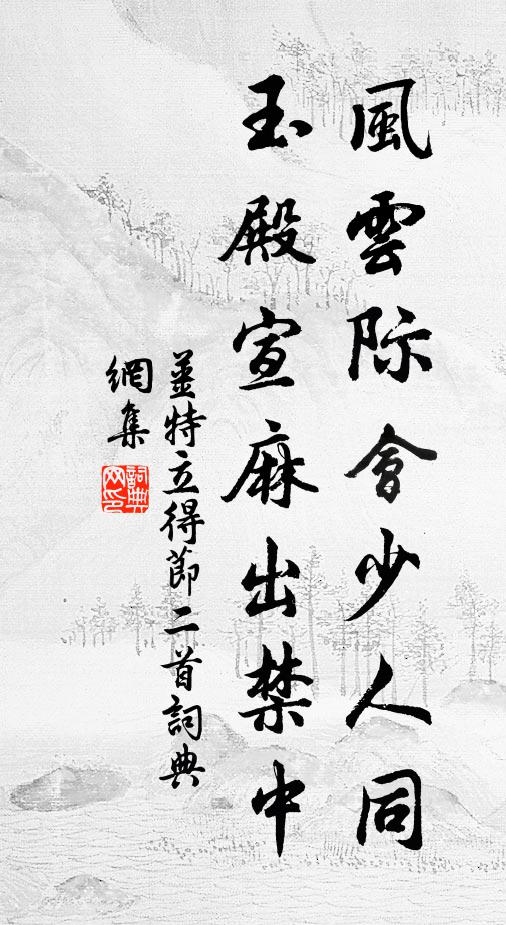 風雲际會少人同
玉殿宣麻出禁中
姜特立得節二首詞典
網集
詞典
网印